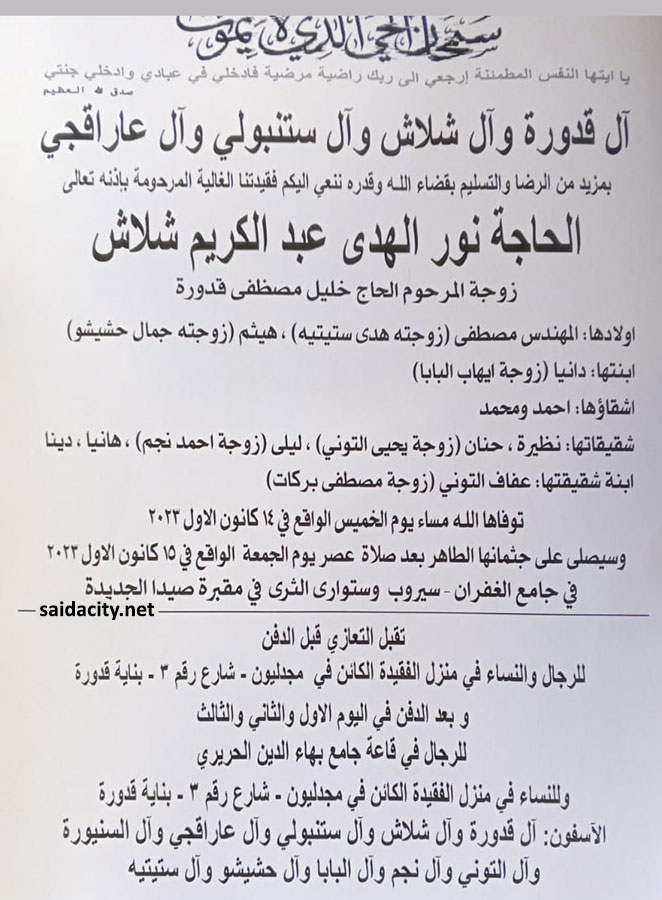 سبحان الحي الذي لا يموت
يا ايتها النفس المطمئنة إرجعي الى ربك راضية مرضية فادخلي في عبادي وادخلي جنتي
صدق الله العظيم
آل قدورة وآل شلاش وآل ستنبولي وآل عاراقجي
بمزيد من الرضا والتسليم بقضاء الله وقدره ننعي اليكم فقيدتنا الغالية المرحومة بإذنه تعالى
الحاجة نور الهدى عبد الكريم شلاش
زوجة المرحوم الحاج خليل مصطفى قدورة
اولادها: المهندس مصطفى (زوجته هدى ستيتيه) ، هيثم (زوجته جمال حشيشو)
ابنتها: دانيا (زوجة ايهاب البابا)
اشقاؤها: احمد ومحمد
شقيقاتها: نظيرة ، حنان (زوجة يحيى التوني) ، ليلى (زوجة احمد نجم) ، هانيا ، دينا
ابنة شقيقتها: عفاف التوني (زوجة مصطفى بركات)
توفاها الله مساء يوم الخميس الواقع في ١٤ كانون الاول ٢٠٢٣
وسيصلى على جثمانها الطاهر بعد صلاة عصر يوم الجمعة الواقع في ١٥ كانون الاول ٢٠٢٣
في جامع الغفران - سيروب وستوارى الثرى في مقبرة صيدا الجديدة
saidacity.net
تقبل التعازي قبل الدفن
للرجال والنساء في منزل الفقيدة الكائن في مجدليون - شارع رقم ٣ - بناية قدورة
و بعد الدفن في اليوم الاول والثاني والثالث
للرجال في قاعة جامع بهاء الدين الحريري
وللنساء في منزل الفقيدة الكائن في مجدليون - شارع رقم ٣ - بناية قدورة
الآسفون: آل قدورة وآل شلاش وآل ستنبولي وآل عاراقجي وآل السنيورة
وآل التوني وآل نجم وآل البابا وآل حشيشو وآل ستيتيه